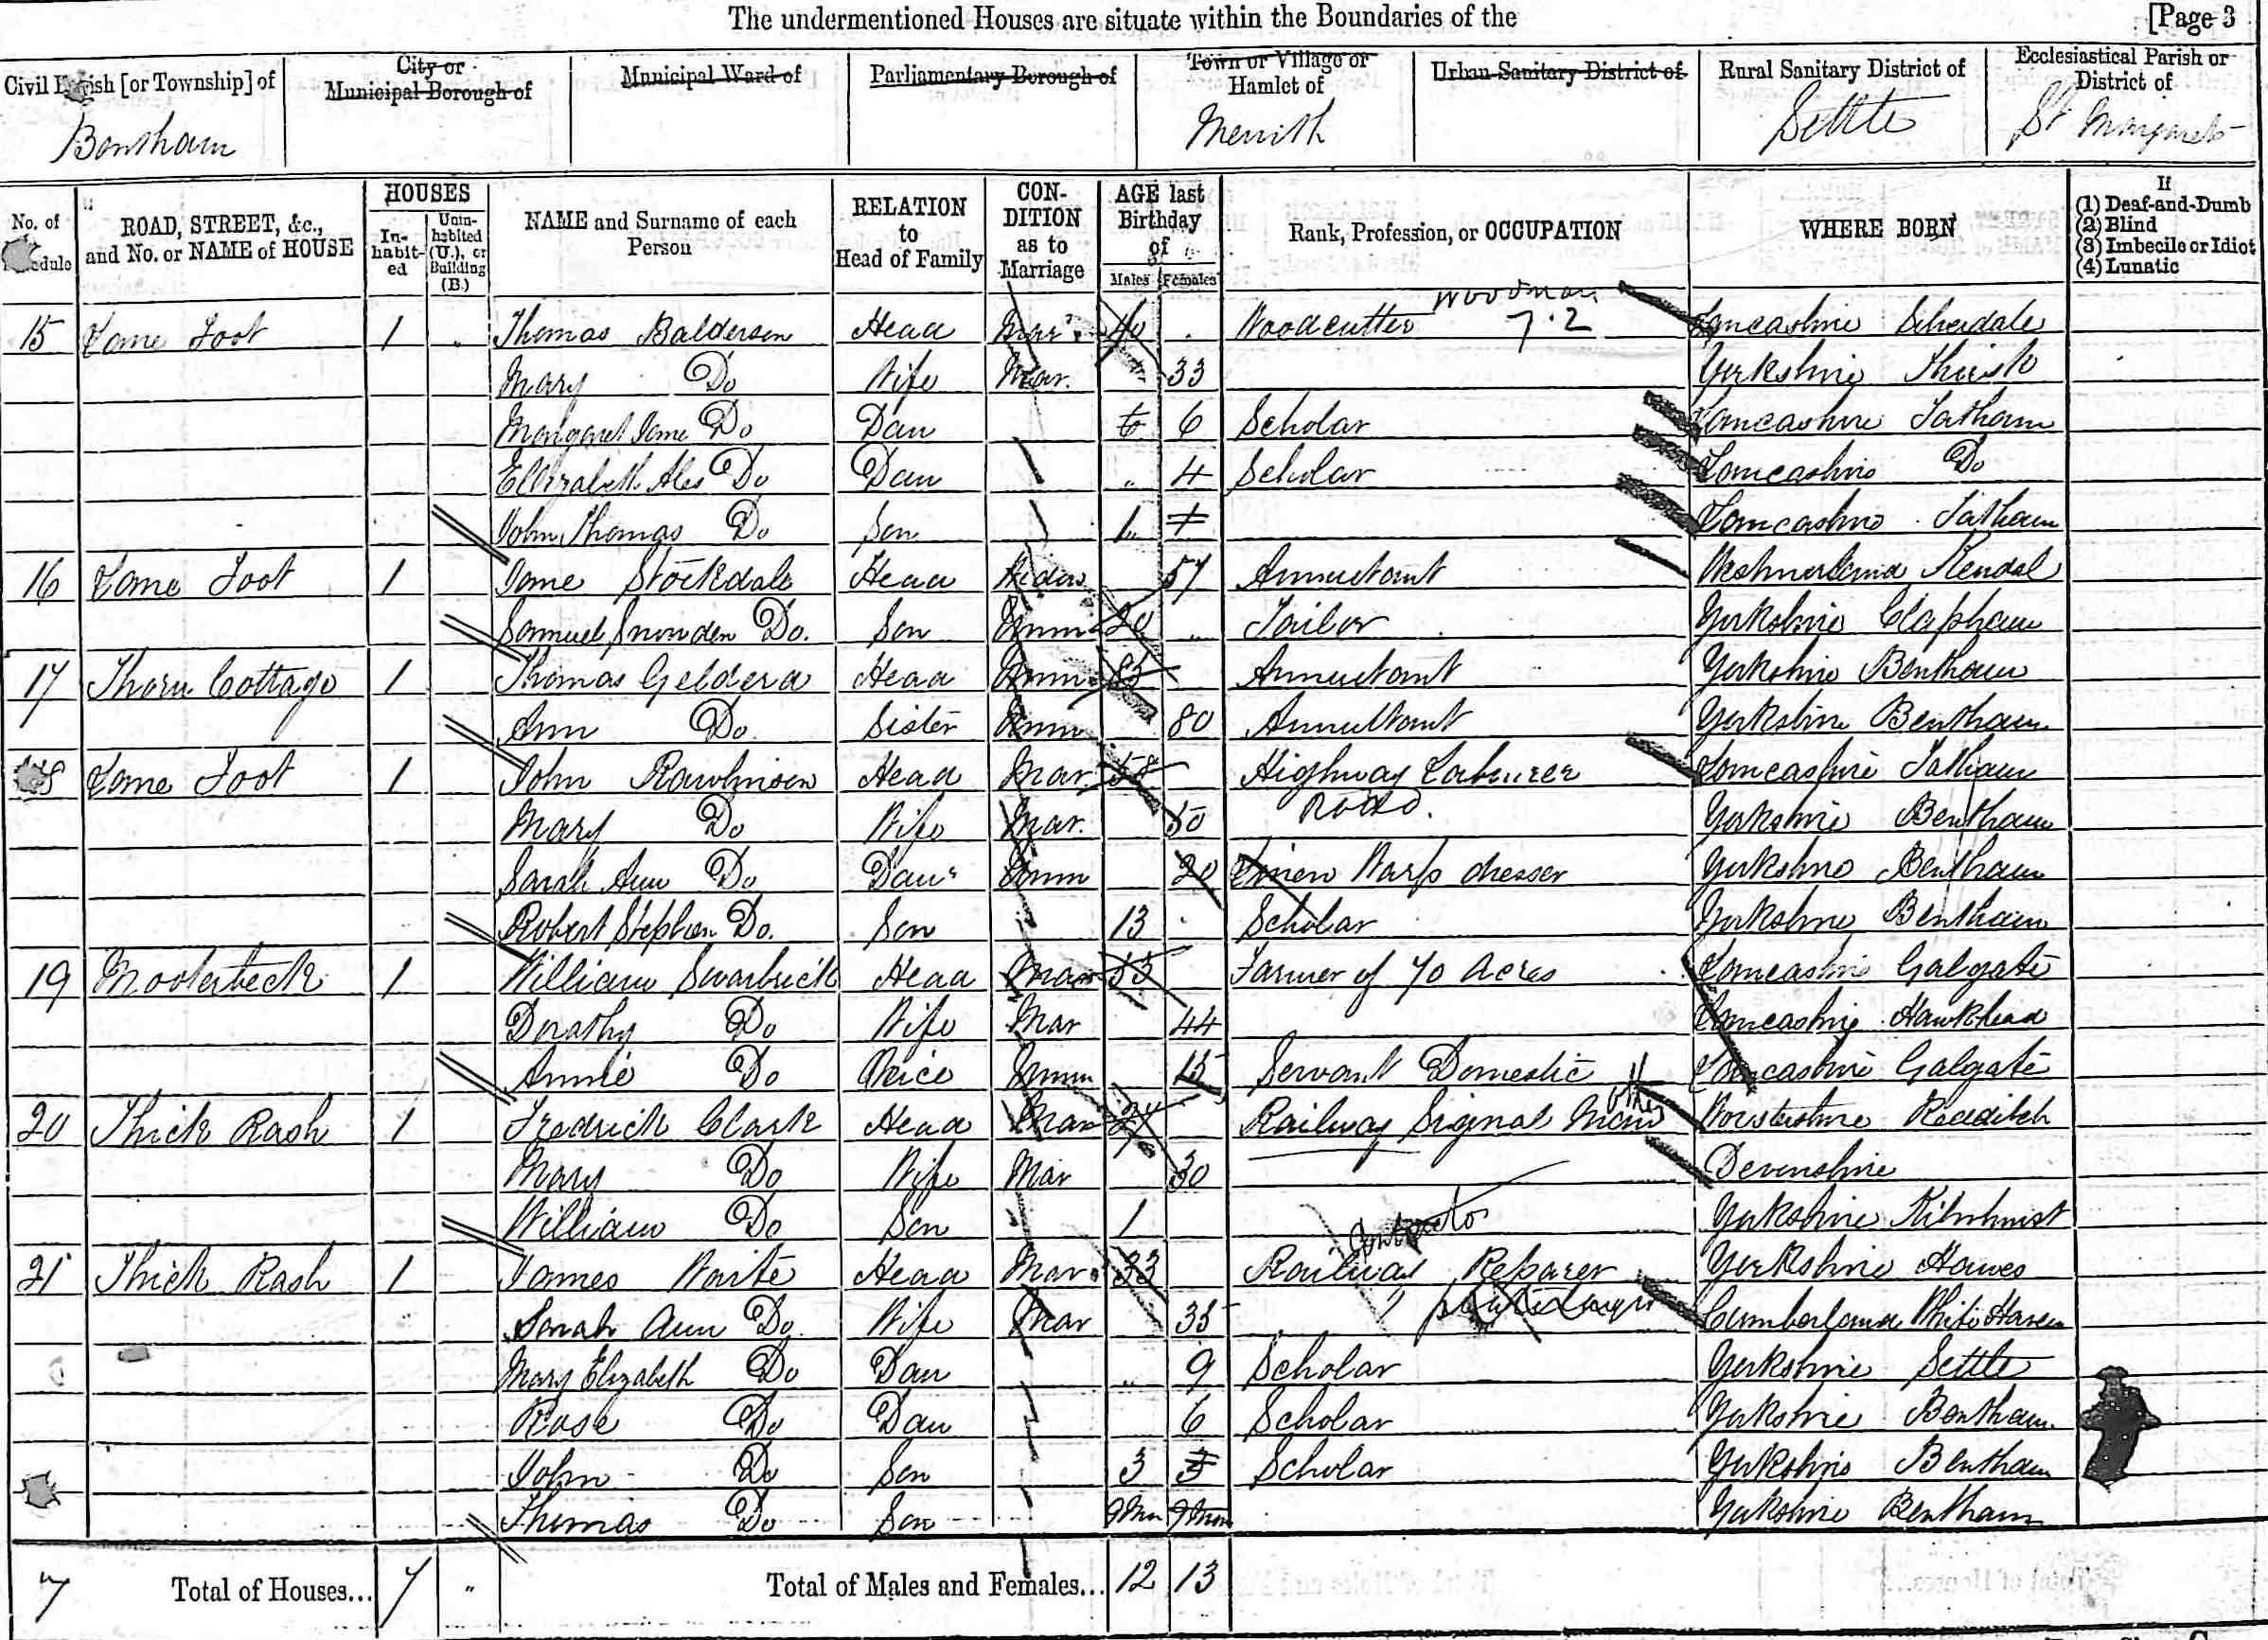 The undermentioned Houses are situate within the Boundaries of the [Page 3
Civil Parish [or Township] of
City or Municipal Borough of
Municipal Ward of
Parliamentary Borough of
Town or Village or Hamlet of
Urban Sanitary District of
Rural Sanitary District of
Ecclesiastical Parish or District of
Bentham Settle St Margarets
No. of Schedule
ROAD, STREET, &c., and No. or NAME of HOUSE
HOUSES
Inhabited
Uninhabited (U.), or Building (B.)
NAME and Surname of each Person
RELATION to Head of Family
CONDITION as to Marriage
AGE last Birthday of
Males Females
Rank, Profession, or OCCUPATION
WHERE BORN
If
(1) Deaf-and-Dumb
(2) Blind
(3) Imbecile or Idiot
(4) Lunatic
Woodman
15 Lane Foot 1 Thomas Balderson Head Mar. 40 Woodcutter 7.2 Lancashire Silverdale
Mary Do Wife Mar. 33 Yorkshire Thirsk
Margaret Jane Do Dau 6 6 Scholar Lancashire Tatham
Ellizabeth Do Dau 4 Scholar Lancashire Do
John Thomas Do Son 1 1 Lancashire Tatham
16 Lane Foot 1 Jane Stockdale Head Widow 57 Annuitant Westmorland Kendal
Samuel Snowden Do. Son Unm 20 Tailor Yorkshire Clapham
17 Thorn Cottage 1 Thomas Gelderd Head Unm 85 Annuitant Yorkshire Bentham
Ann Do. Sister Unm 80 Annuitant Yorkshire Bentham
18 Lane Foot 1 John Rawlinson Head Mar. 58 Highway Labourer Lancashire Tatham
Mary Do Wife Mar. 50 Road. Yorkshire Bentham
Sarah Ann Do Daur Unm 20 Linen Warp dresser Yorkshire Bentham
Robert Stephen Do. Son 13 Scholar Yorkshire Bentham
19 Mooterbeck 1 William Swarbrick Head Mar 53 Farmer of 70 Acres Lancashire Galgate
Dorathy Do Wife Mar 44 Lancashire Hawkshead
Annie Do Neice Unm 15 Servant Domestic Lancashire Galgate
20 Thick Rash 1 Fredrick Clark Head Mar 27 Railway Signal Man other Worstershire Redditch
Mary Do Wife Mar 30 Devonshire
William Do Son 1 Yorkshire Kilnhurst
Contractor
21 Thick Rash 1 James Waite Head Mar. 33 Railway Reparer Yorkshire Hawes
Sarah Ann Do. Wife Mar 35 platelayer Cumberland White Haven
Mary Elizabeth Do Dau 9 Scholar Yorkshire Settle
Rose Do Dau 6 Scholar Yorkshire Bentham
John Do Son 3 3 Scholar Yorkshire Bentham
Thomas Do Son 9 Mn 9 Mon Yorkshire Bentham
7 Total of Houses... 7 Total of Males and Females... 12 13